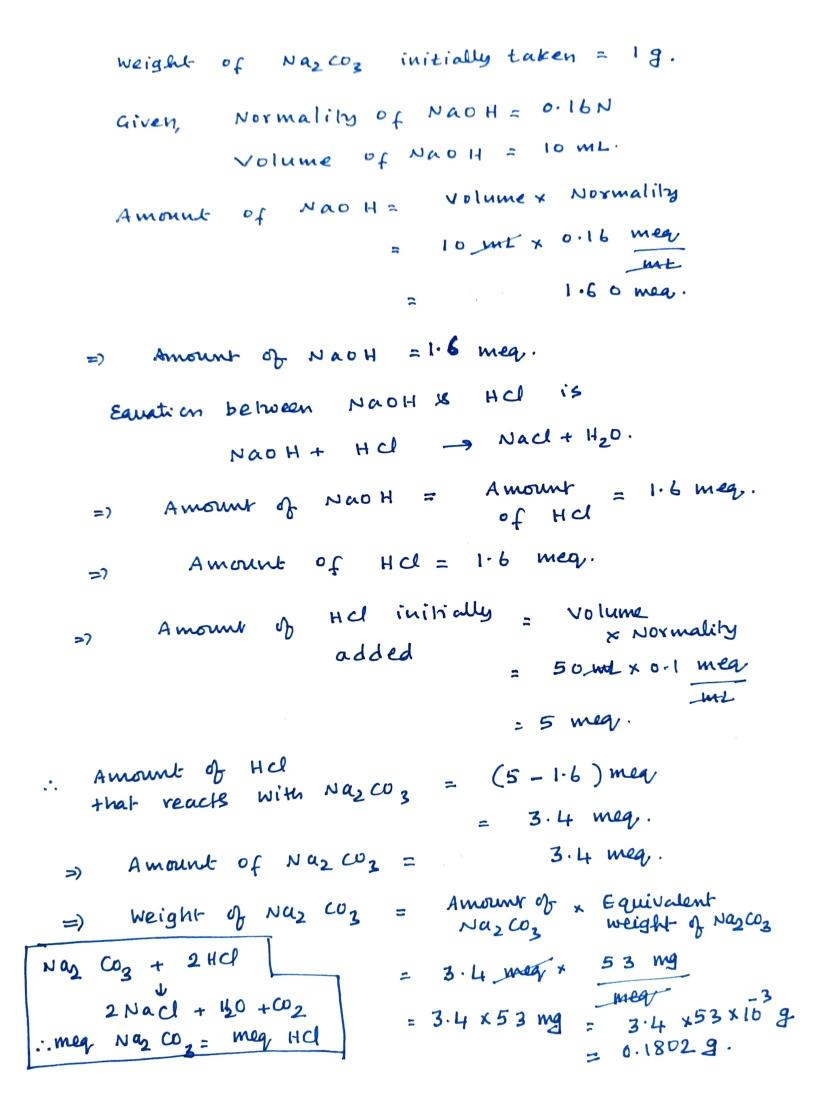 Weight of Na2CO3 initially taken = 1g.
Given, Normality of NaOH = 0.16N
Volume of NaOH = 10 mL.
Amount of NaOH = Volume x Normality
= 10 mL x 0.16 meq/mL
= 1.60 meq.
=> Amount of NaOH = 1.6 meq.
Equation between NaOH & HCl is
NaOH + HCl → NaCl + H2O.
=> Amount of NaOH = Amount of HCl = 1.6 meq.
=> Amount of HCl = 1.6 meq.
=> Amount of HCl initially added = Volume x Normality
= 50 mL x 0.1 meq/mL
= 5 meq.
∴ Amount of HCl that reacts with Na2CO3 = (5 - 1.6) meq
= 3.4 meq.
=> Amount of Na2CO3 = 3.4 meq.
=> Weight of Na2CO3 = Amount of Na2CO3 x Equivalent weight of Na2CO3
= 3.4 meq x 53 mg/meq
= 3.4 x 53 mg = 3.4 x 53 x 10^-3 g
= 0.1802 g.
Na2CO3 + 2HCl
↓
2NaCl + H2O + CO2
∴ meq Na2CO3 = meq HCl